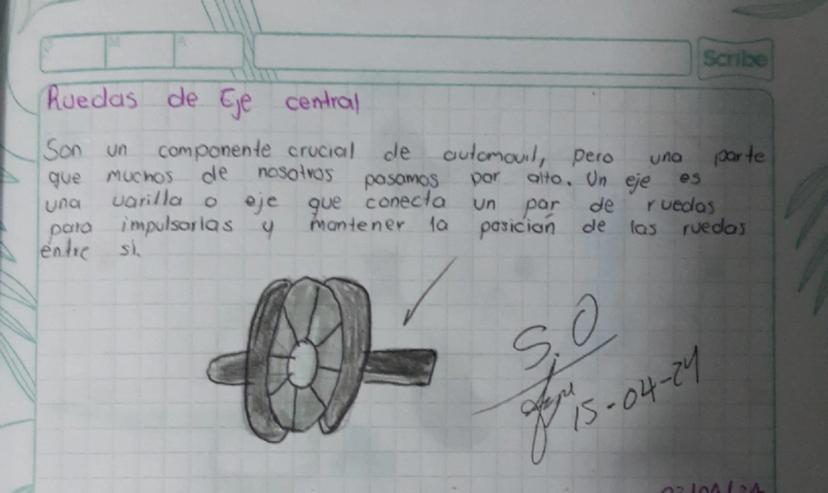 Scribe
Ruedas de Eje central
Son un componente crucial de automovil, pero una parte
que muchos de nosotros pasamos por alto. Un eje es
una varilla o eje que conecta un par de ruedas
para impulsarlas y mantener la posición de las ruedas
entre sí.
S.O
15-04-24